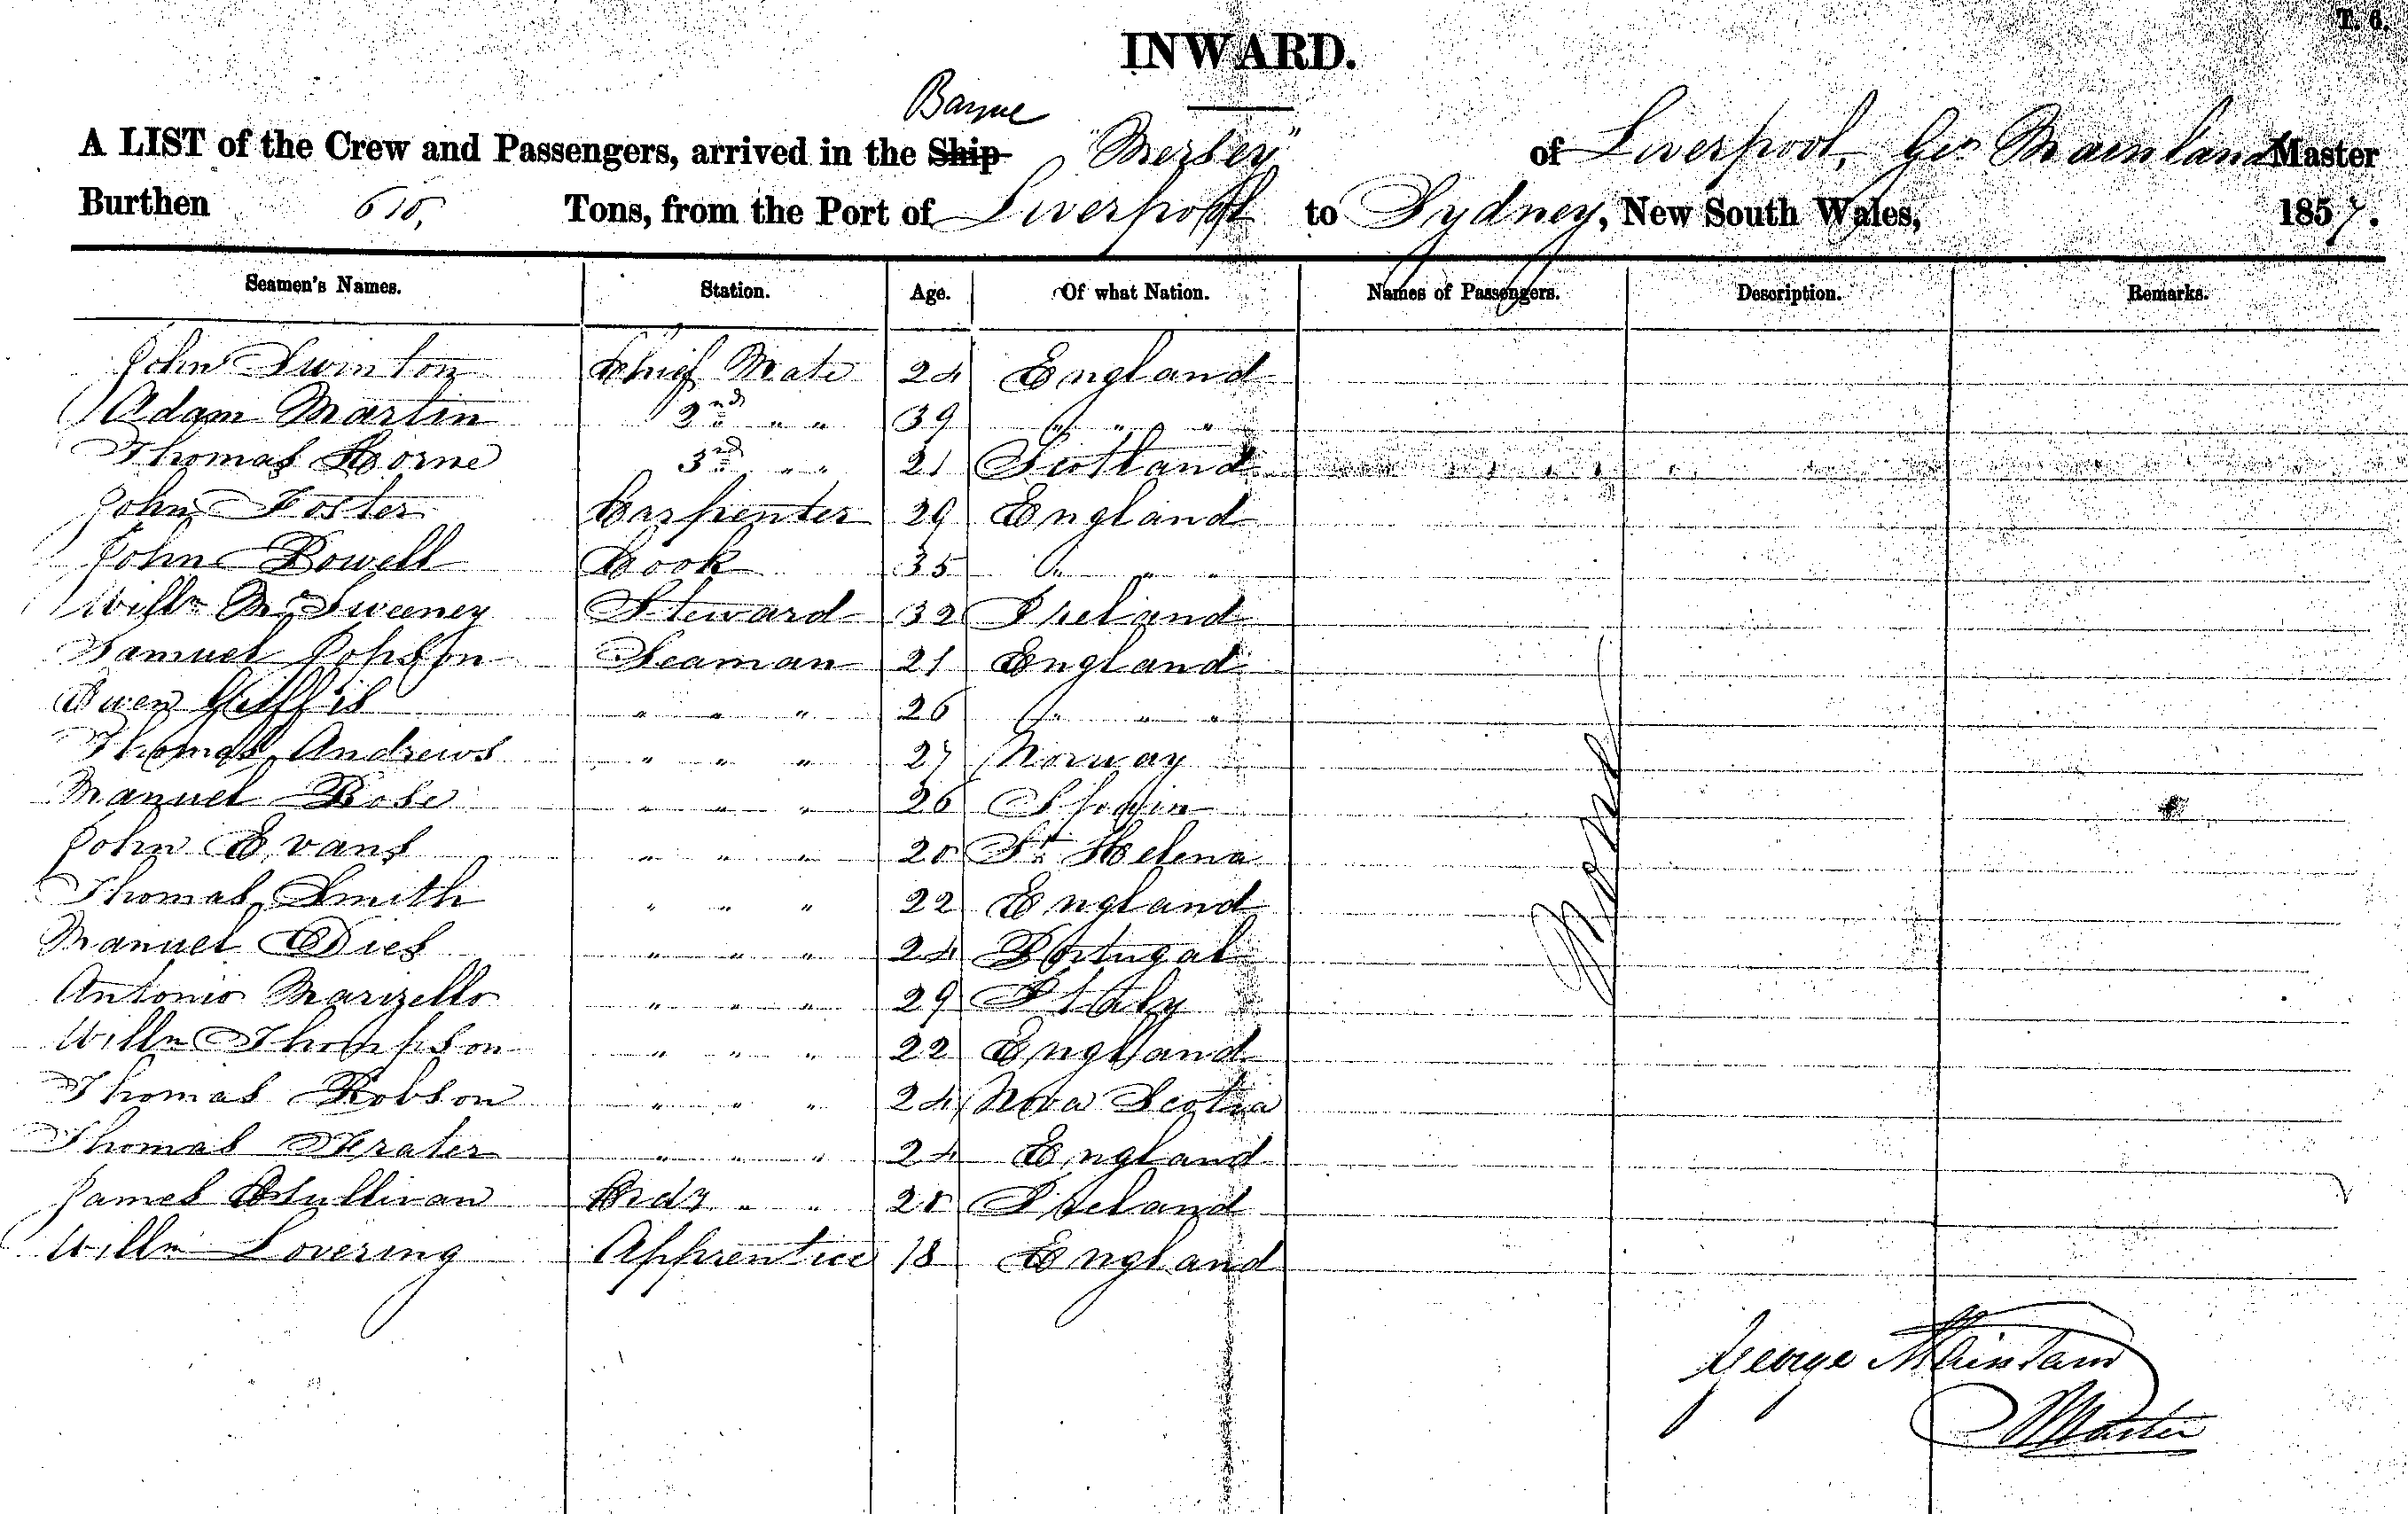 T. 6.
INWARD.
Barque
A LIST of the Crew and Passengers, arrived in the Ship "Mersey" of Liverpool, Geo Mainland Master
Burthen 615, Tons, from the Port of Liverpool to Sydney, New South Wales, 1857.
Seamen's Names. Station. Age. Of what Nation. Names of Passengers. Description. Remarks.
John Swinton Chief Mate 24 England
Adam Martin 2nd " " 39 " " "
Thomas Horne 3rd " " 21 Scotland
John Foster Carpenter 29 England
John Powell Cook 35 " " "
Willm McSweeney Steward 32 Ireland
Samuel Jopson Seaman 21 England
Owen Griffis " " " 26 " " "
Thomas Andrews " " " 27 Norway
Manuel Rose " " " 26 Spain
John Evans " " " 20 St Helena
Thomas Smith " " " 22 England
Manuel Dies " " " 24 Portugal
Antonio Marizello " " " 29 Italy
Willm Thompson " " " 22 England
Thomas Robson " " " 24 Nova Scotia
Thomas Frater " " " 24 England
James OSullivan Ordy " " 20 Ireland
Willm Lovering Apprentice 18 England
None
George Mainland
Master